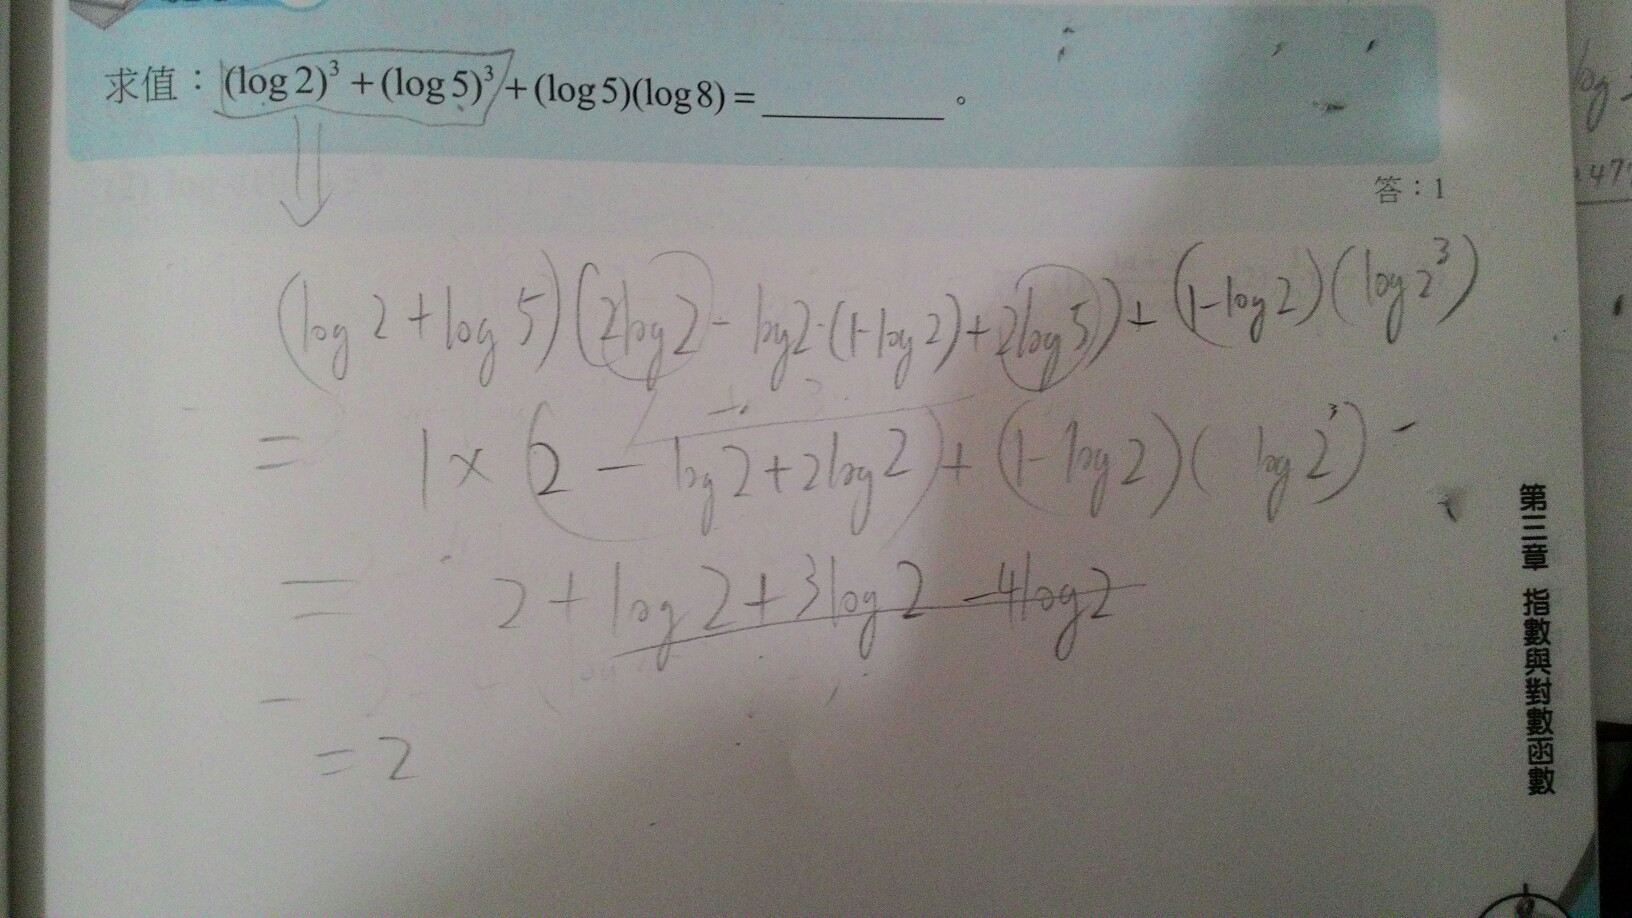 求值：(log 2)³ + (log 5)³ + (log 5)(log 8) = ________ 。
答：1
(log 2 + log 5)(2log 2 - log 2·(1-log 2) + 2log 5) + (1-log 2)(log 2³)
= 1 × (2 - log 2 + 2log 2) + (1-log 2)(log 2³) -
= 2 + log 2 + 3log 2 - 4log 2
= 2
第三章 指數與對數函數